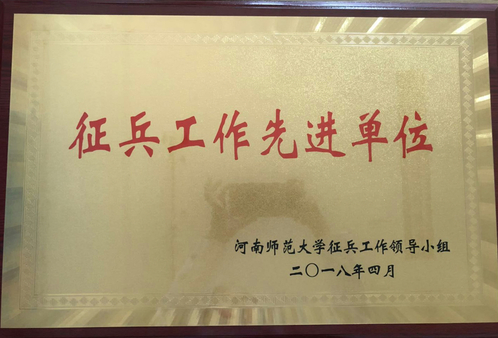 征兵工作先进单位
河南师范大学征兵工作领导小组
二〇一八年四月